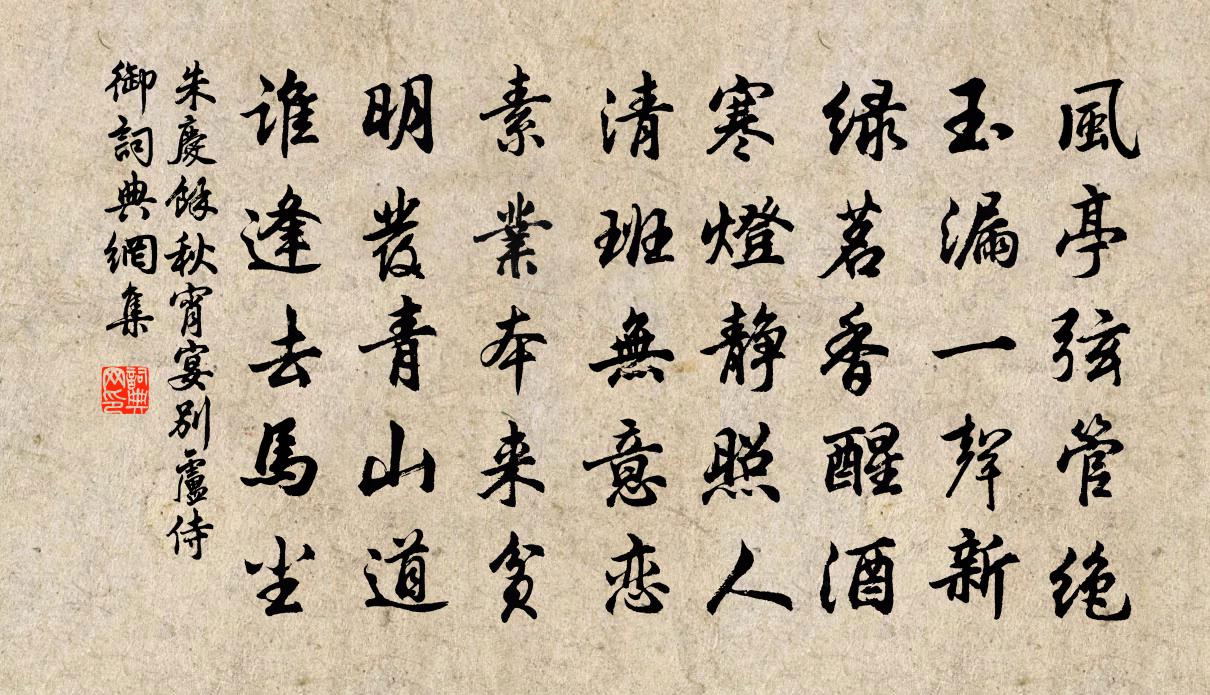 風亭弦管绝
玉漏一聲新
绿茗香醒酒
寒燈静照人
清班無意恋
素業本来貧
明發青山道
谁逢去馬尘
朱慶餘秋宵宴别盧侍
御詞典網集
詞典网印